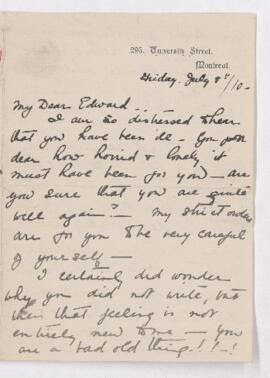 295, University Street.
Montreal.
Friday. July 8th/10 –
My Dear Edward..
I am so distressed to hear
that you have been ill – You poor
dear how horrid & lonely it
must have been for you – are
you sure that you are quite
well again? – My strict orders
are for you to be very careful
of yourself –
I certainly did wonder
why you did not write, but
then that feeling is not
entirely new to me – you
are a bad old thing!!–!